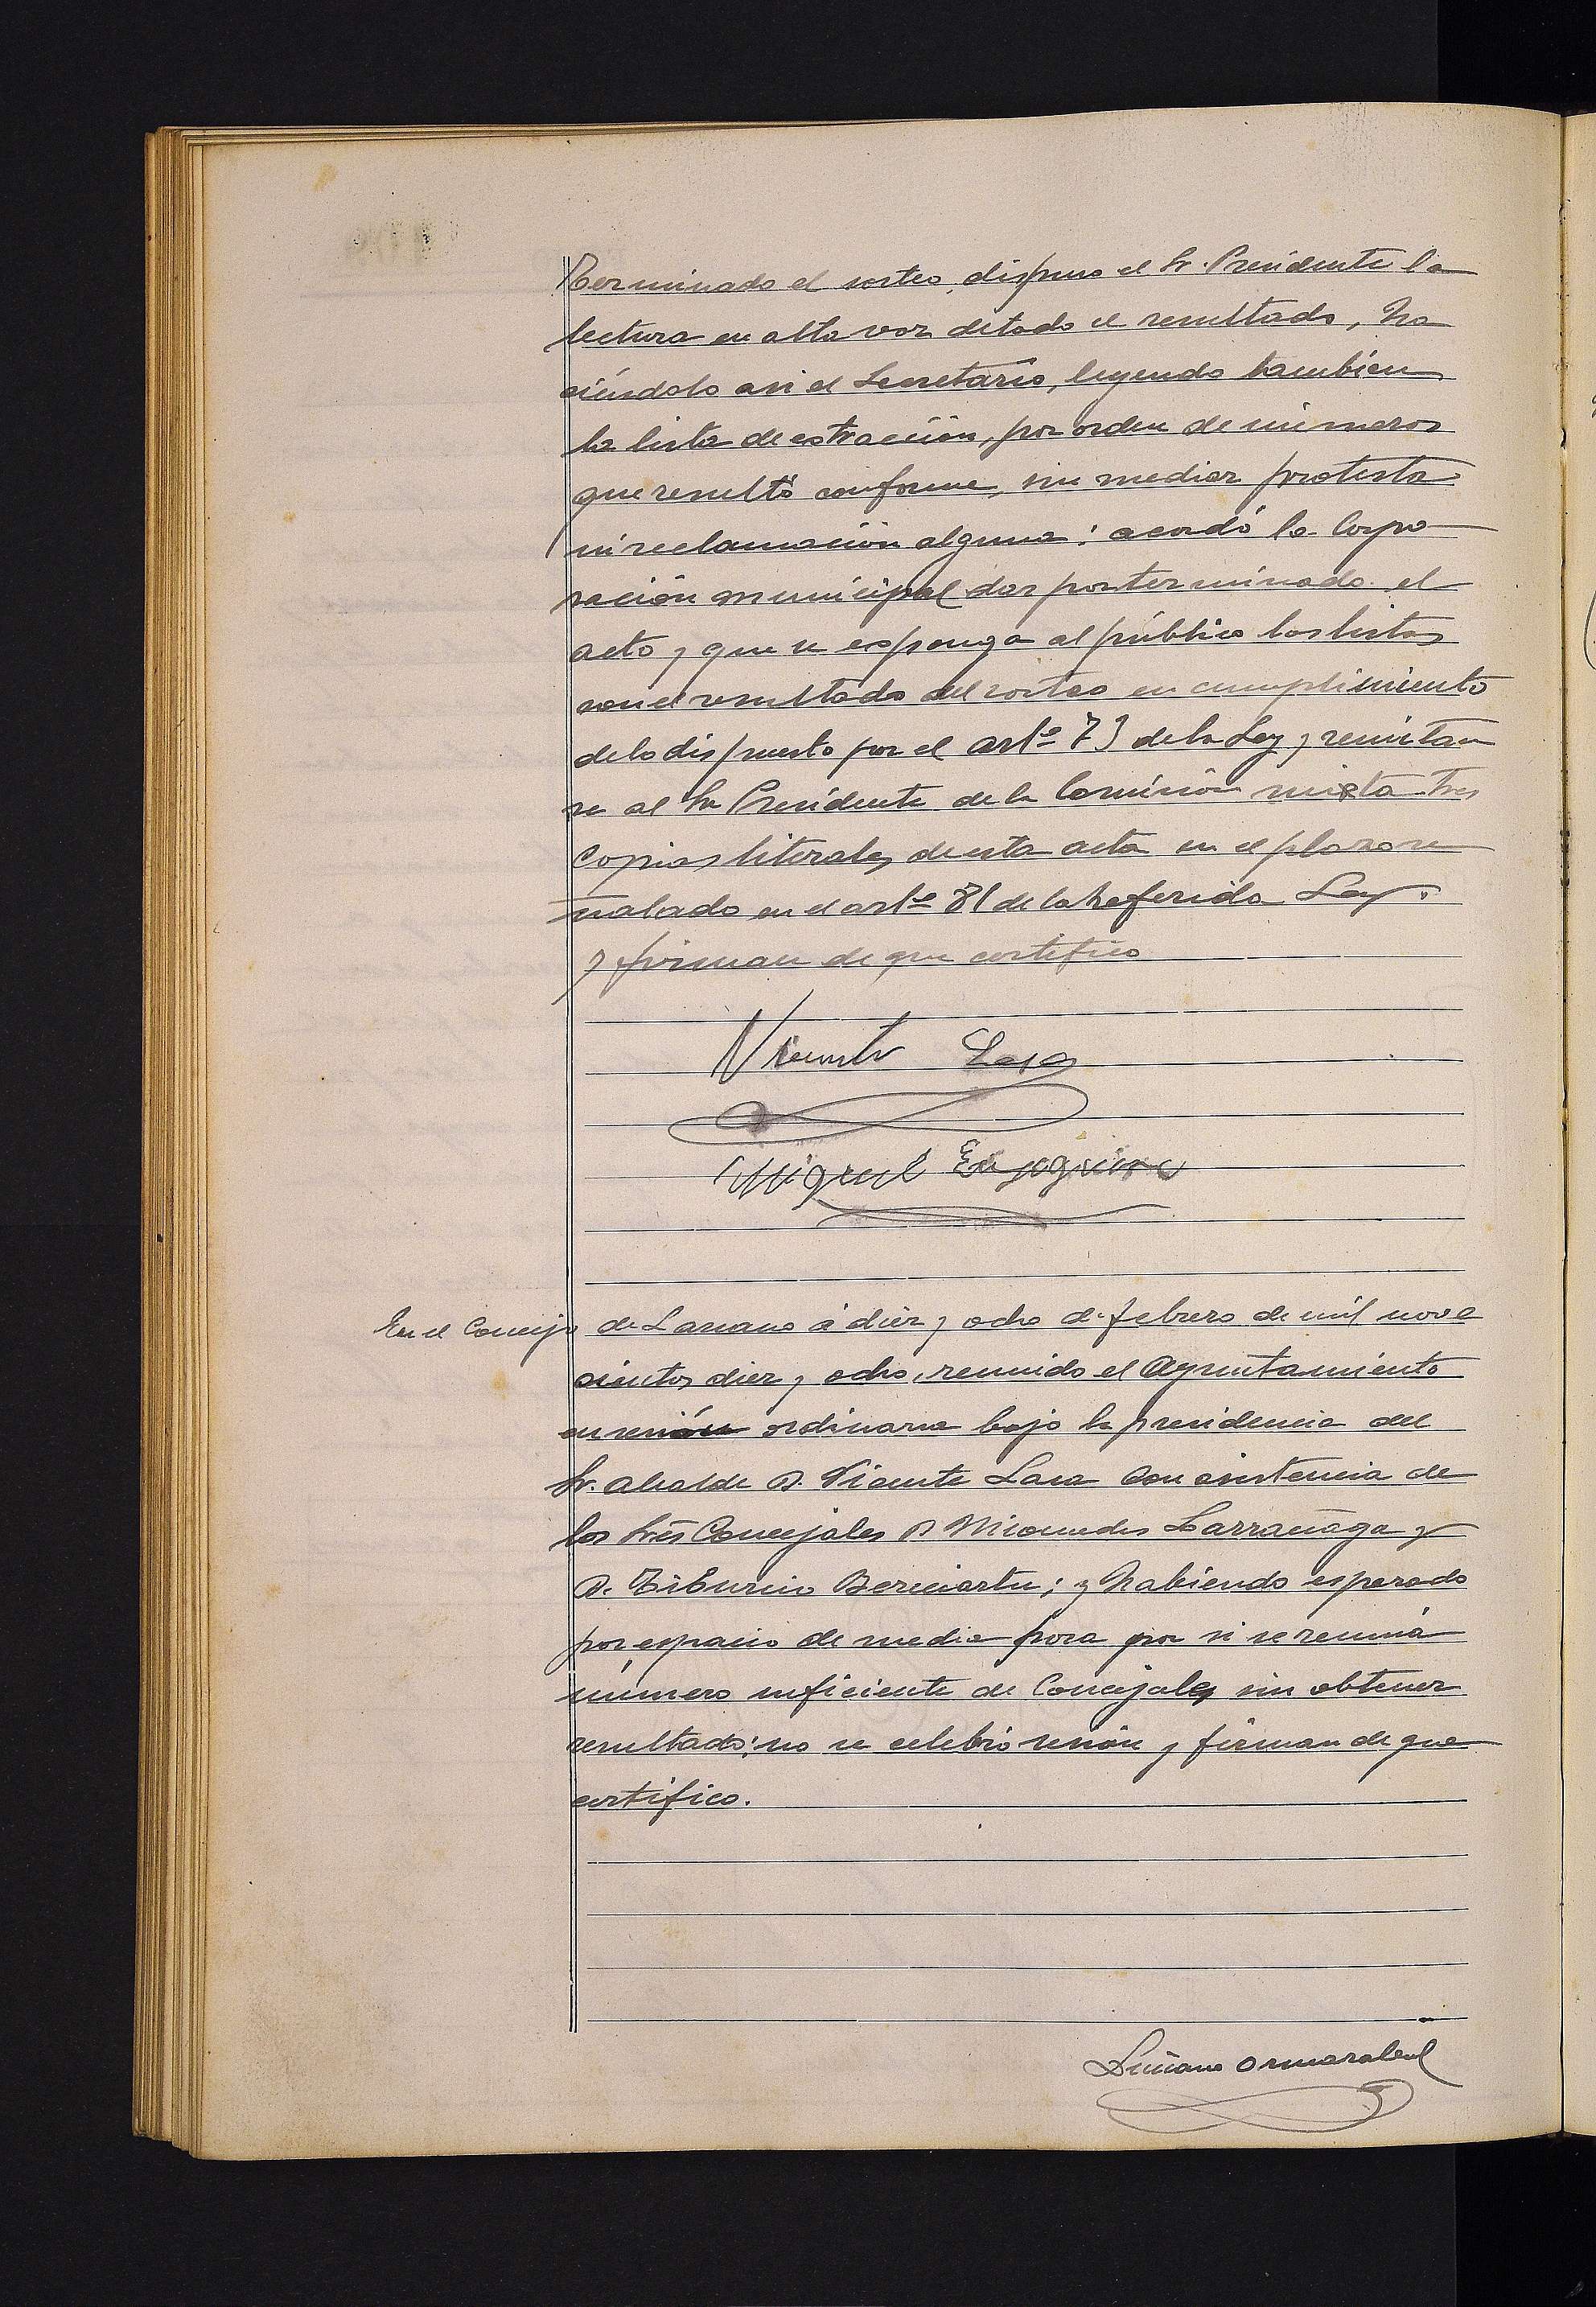 Terminado el sorteo, dispuso el Sr. Presidente la
lectura en alta voz de todo el resultado, ha
ciéndolo asi el Secretario, leyendo tambien
la lista de estracción, por orden de números
que resultó conforme, sin mediar protesta
ni reclamación alguna: acordó la Corpo
ración municipal dar por terminado el
acto y que se esponga al público las listas
con el resultado del sorteo en cumplimiento
de lo dispuesto por el artº 73 de la Ley y remitan
se al Sr Presidente de la Comisión mixta tres
copias literales de esta acta en el plazo se
ñalado en el artº 81 de la referida Ley.
y firman de que certifico
Vicente Lasa
Miguel Eizaguirre
En el Concejo de Lazcano á diez y ocho de febrero de mil nove
cientos diez y ocho, reunido el Ayuntamiento
en sesión ordinaria bajo la presidencia del
Sr. Alcalde D. Vicente Lasa con asistencia de
los Sres Concejales D Nicomedes Larrañaga y
D. Tiburcio Berciartu; y habiendo esperado
por espacio de media hora por si se reunía
número suficiente de Concejales sin obtener
resultado: no se celebró sesión y firman de que
certifico.
Luciano Ormazabal